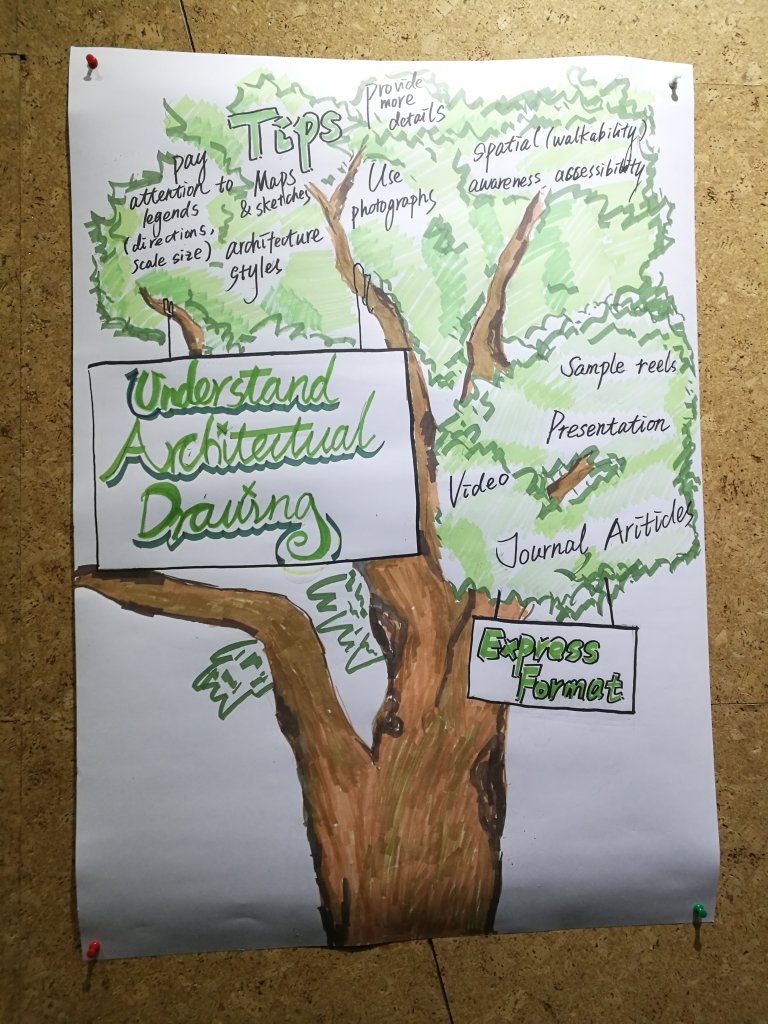 Tips
Provide
more
details
pay
attention to
legends
(directions,
scale size)
Maps
& sketches
architecture
styles
Use
photographs
Spatial (walkability)
awareness accessibility
Understand
Architectual
Drawing
Sample reels
Presentation
Video
Journal Ariticles
Express
Format